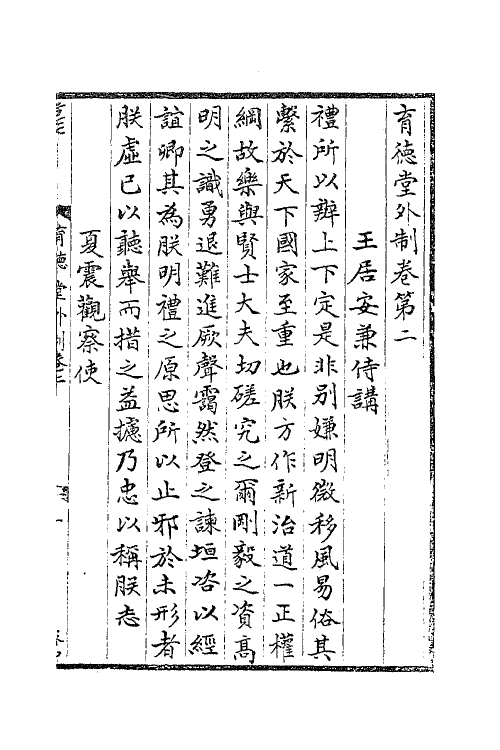 育德堂外制卷第二
王居安兼侍講
禮所以辯上下定是非别嫌明微移風易俗其
繫於天下國家至重也朕方作新治道一正權
綱故樂與賢士大夫切磋究之爾剛毅之資髙
明之識勇退難進厥聲靄然登之諫垣咨以經
誼卿其為朕明禮之原思所以止邪於未形者
朕虛已以聽舉而措之益攄乃忠以稱朕志
夏震觀察使
育德堂外制卷二
一